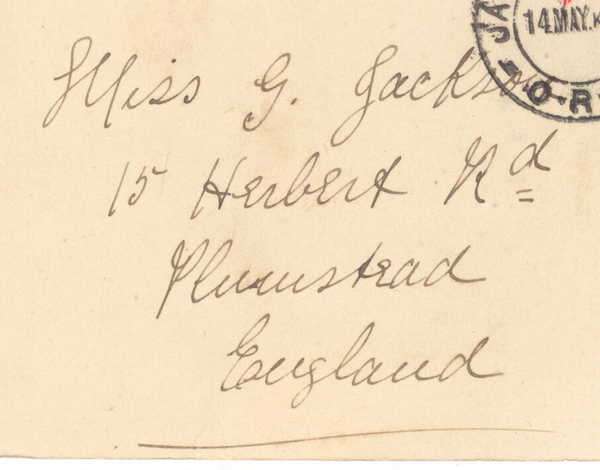 JA
14.MAY.
O.R
Miss G. Jackson
15 Herbert Rd
Plumstead
England